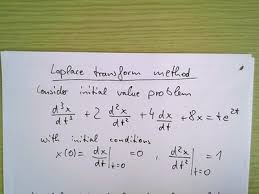 Laplace transform method
Consider initial value problem
d³x/dt³ + 2 d²x/dt² + 4 dx/dt + 8x = te^2t
with initial conditions
x(0) = dx/dt|t=0 = 0, d²x/dt²|t=0 = 1